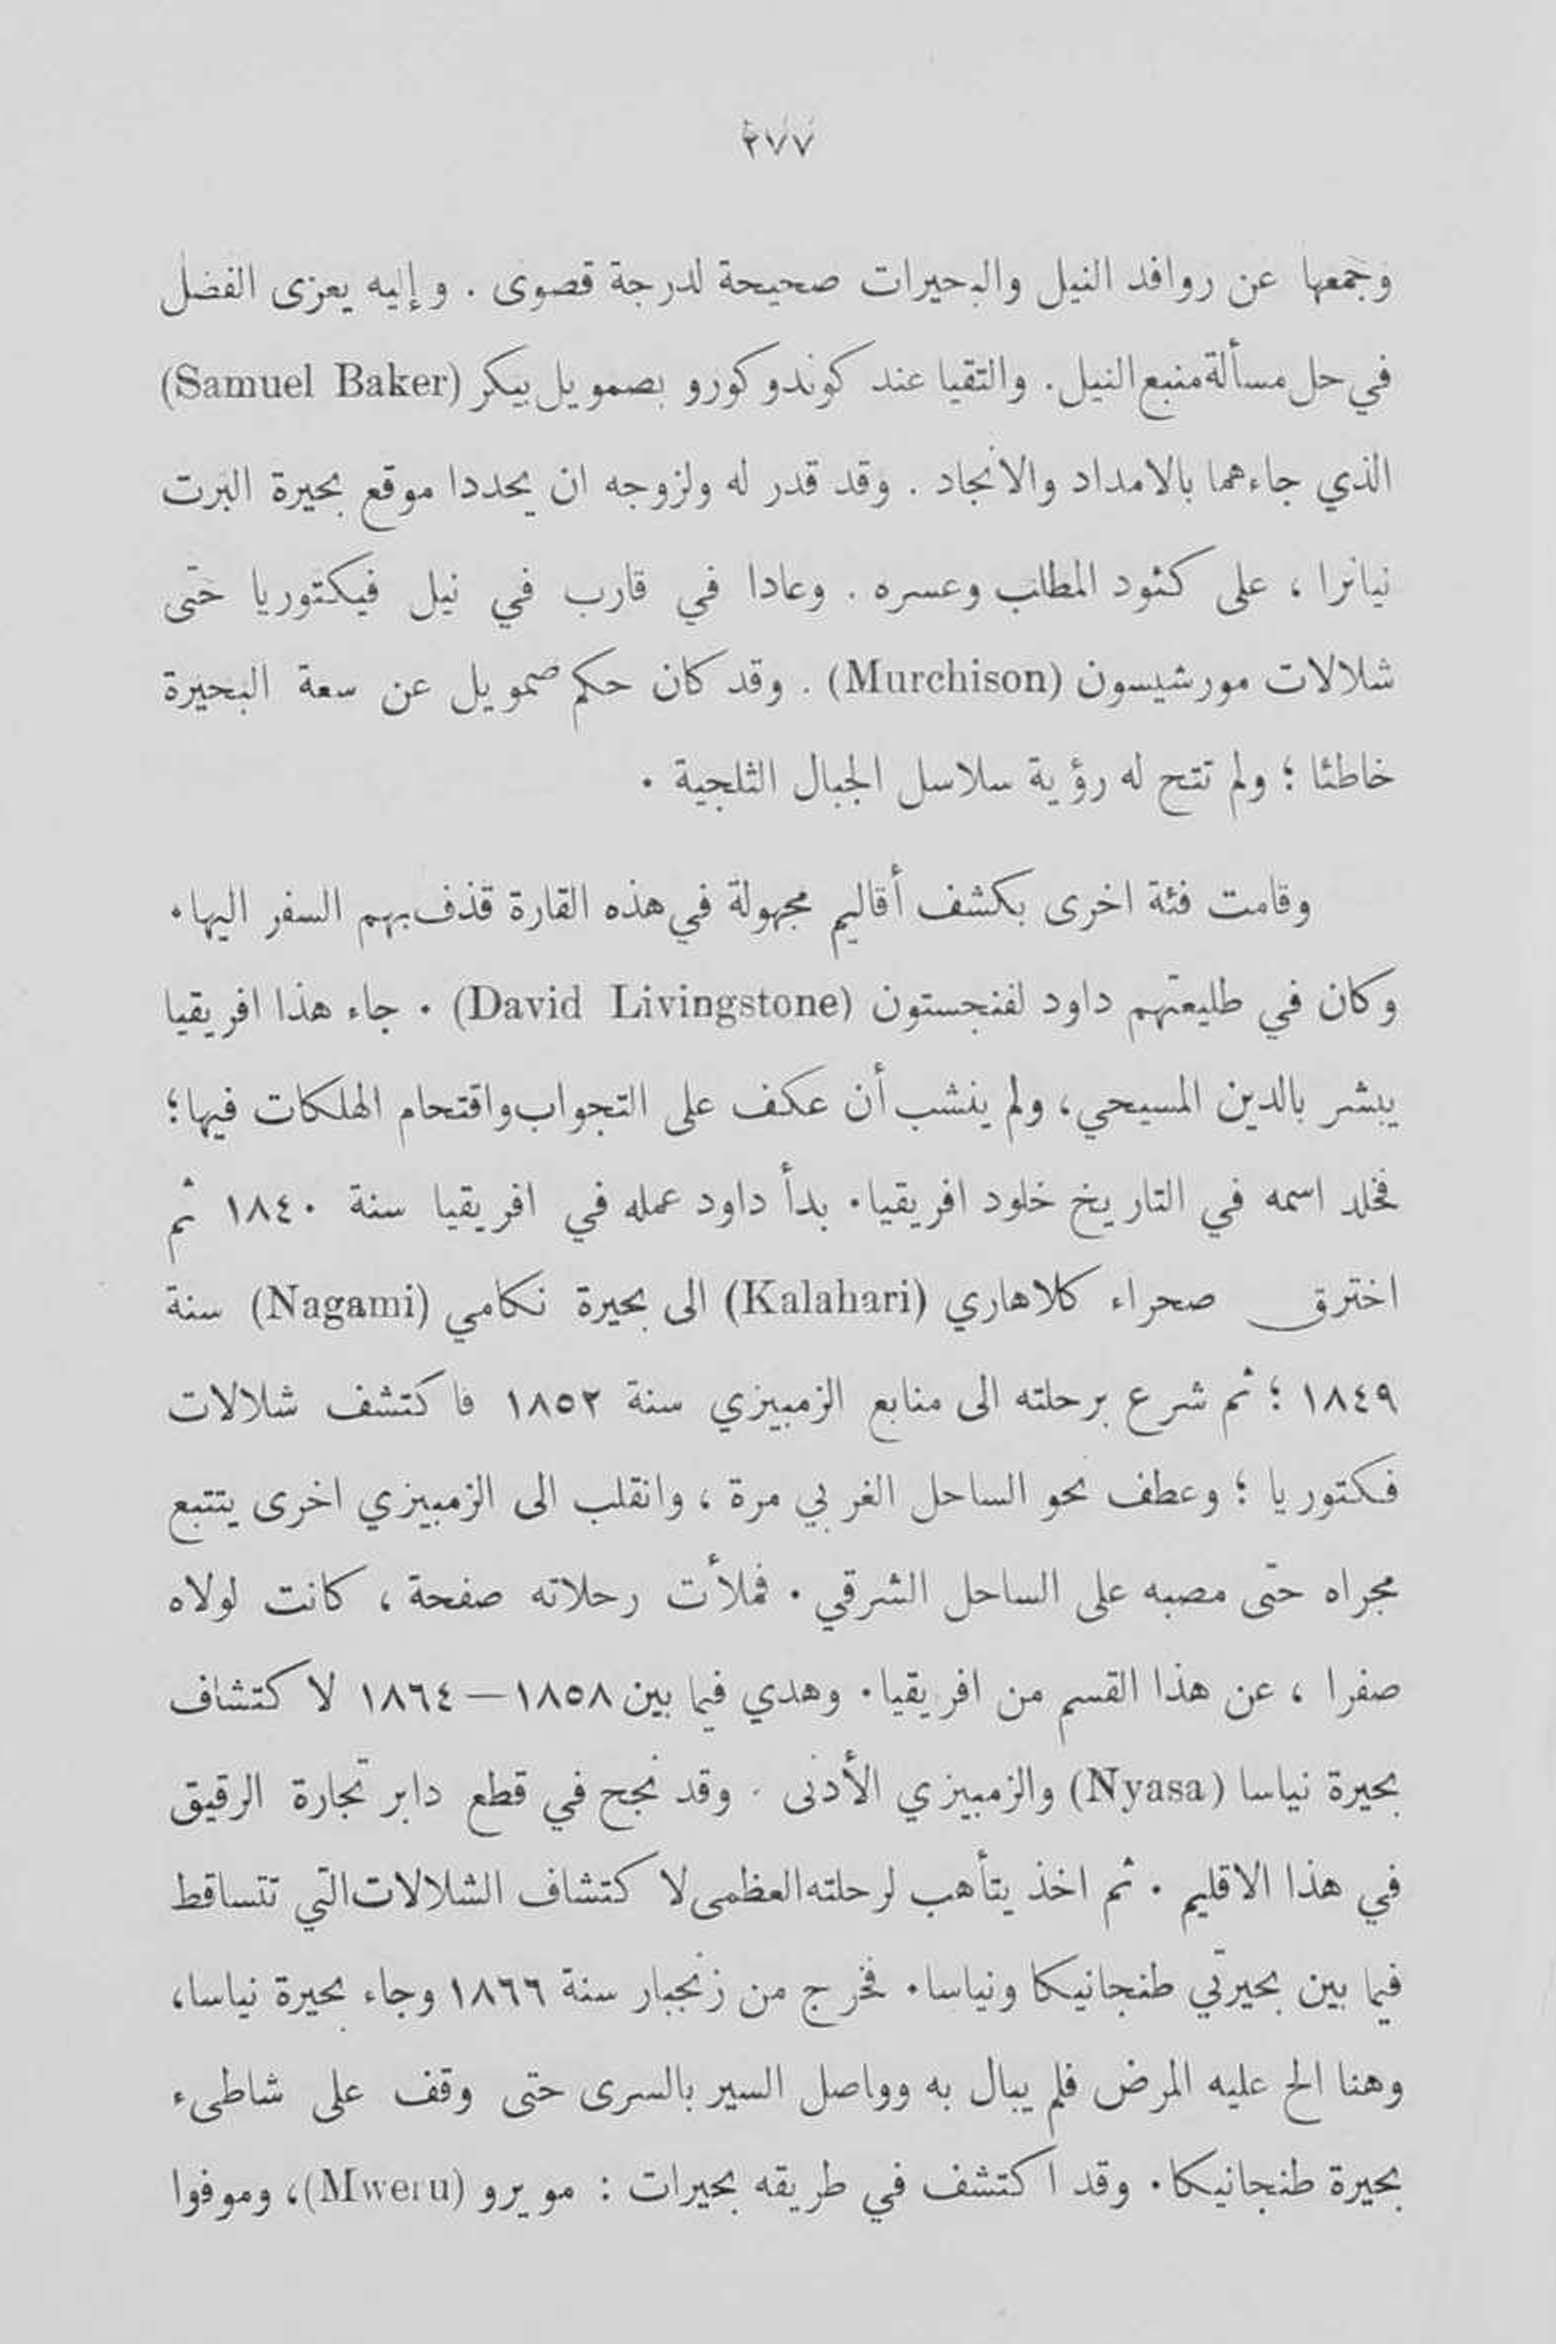 ٢٧٧
وجمعها عن روافد النيل والبحيرات صحيحة لدرجة قصوى . وإليه يعزى الفضل
في حل مسألة منبع النيل . والتقيا عند كوندوكورو بصمويل بيكر (Samuel Baker)
الذي جاءهما بالامداد والانجاد . وقد قدر له ولزوجه ان يحددا موقع بحيرة البرت
نيانزا ، على كئود المطلب وعسره . وعادا في قارب في نيل فيكتوريا حتى
شلالات مورشيسون (Murchison) . وقد كان حكم صمويل عن سعة البحيرة
خاطئا ؛ ولم تتح له رؤية سلاسل الجبال الثلجية .
وقامت فئة اخرى بكشف أقاليم مجهولة في هذه القارة قذف بهم السفر اليها .
وكان في طليعتهم داود لفنجستون (David Livingstone) . جاء هذا افريقيا
يبشر بالدين المسيحي ، ولم ينشب أن عكف على التجواب واقتحام الهلكات فيها ؛
فخلد اسمه في التاريخ خلود افريقيا . بدأ داود عمله في افريقيا سنة ١٨٤٠ ثم
اخترق صحراء كلاهاري (Kalahari) الى بحيرة نكامي (Nagami) سنة
١٨٤٩ ؛ ثم شرع برحلته الى منابع الزمبيزي سنة ١٨٥٢ فاكتشف شلالات
فكتوريا ؛ وعطف نحو الساحل الغربي مرة ، وانقلب الى الزمبيزي اخرى يتتبع
مجراه حتى مصبه على الساحل الشرقي . فملأت رحلاته صفحة ، كانت لولاه
صفرا ، عن هذا القسم من افريقيا . وهدي فيما بين ١٨٥٨ — ١٨٦٤ لاكتشاف
بحيرة نياسا (Nyasa) والزمبيزي الأدنى . وقد نجح في قطع دابر تجارة الرقيق
في هذا الاقليم . ثم اخذ يتأهب لرحلته العظمى لاكتشاف الشلالات التي تتساقط
فيما بين بحيرتي طنجانيكا ونياسا . فخرج من زنجبار سنة ١٨٦٦ وجاء بحيرة نياسا ،
وهنا الح عليه المرض فلم يبال به وواصل السير بالسرى حتى وقف على شاطىء
بحيرة طنجانيكا . وقد اكتشف في طريقه بحيرات : مويرو (Mweru) ، وموفوا